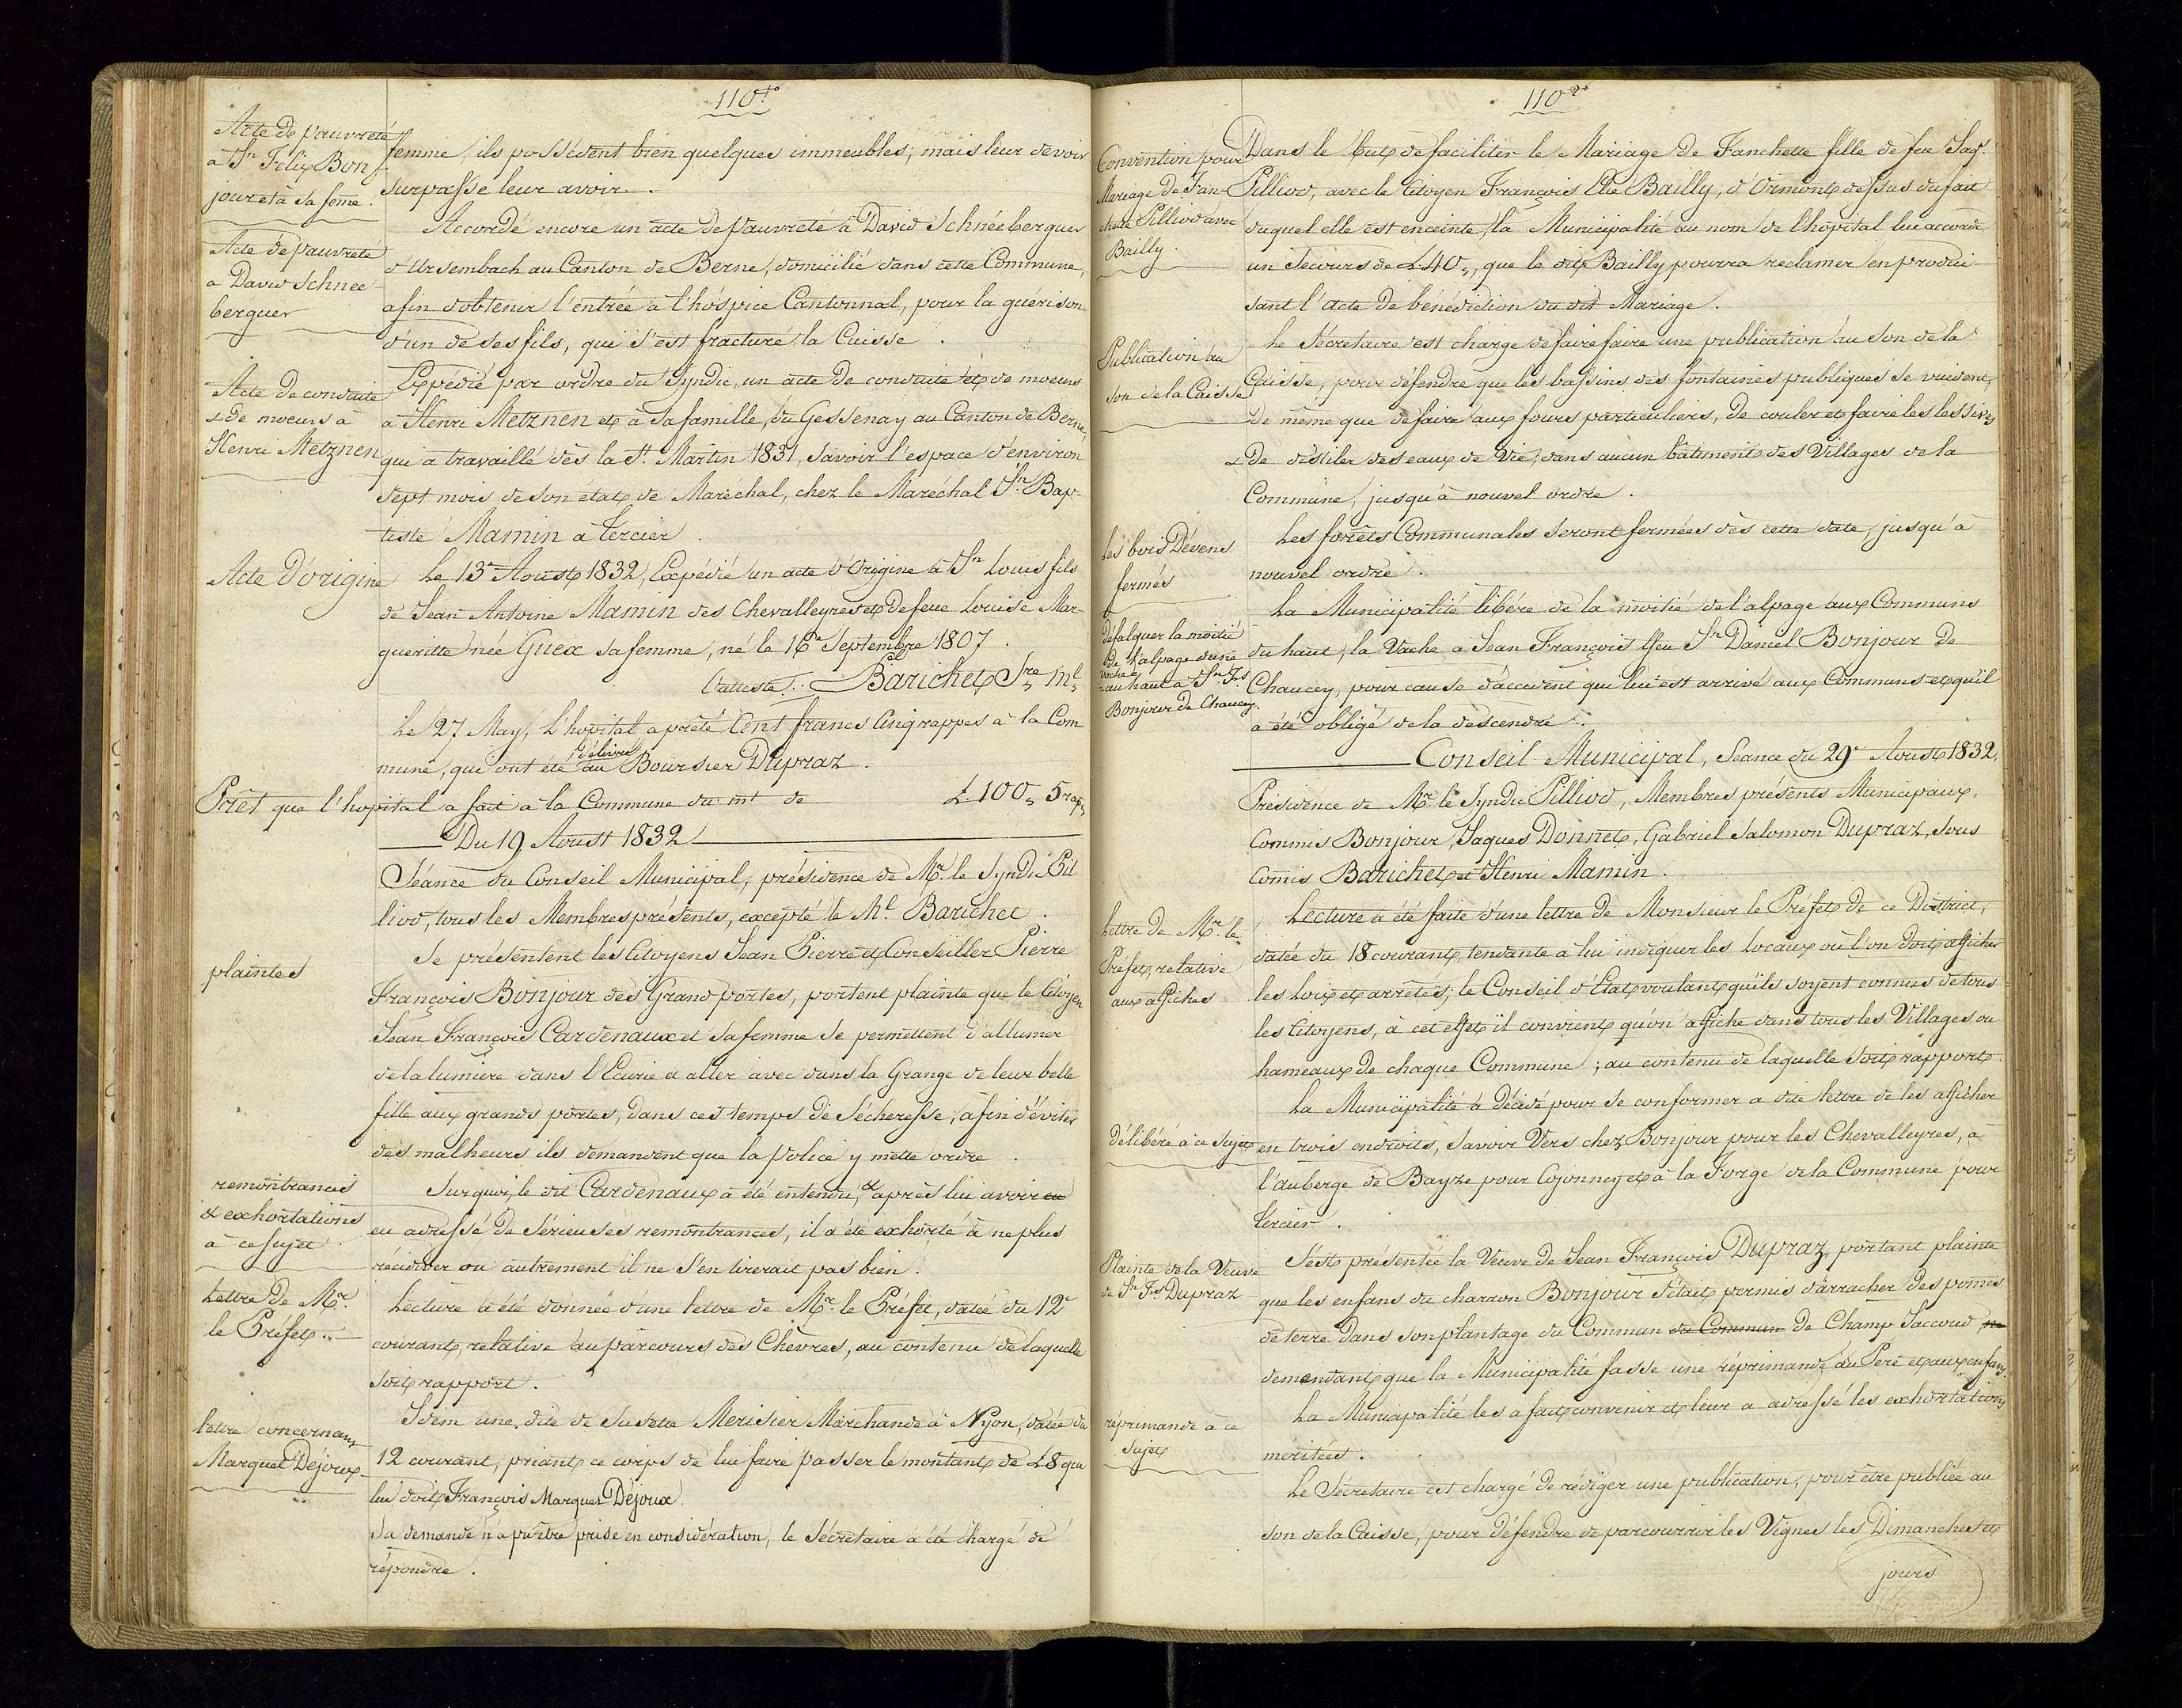 110.1°
Acte de pauvreté
à Jn Felix Bon
jour et à sa feme.
femme, ils possédent bien quelques immeubles; mais leur devoir
surpasse leur avoir.
Acte de pauvreté
a David Schnee
berguer
Accordé encore un acte de pauvreté à David Schnéeberguer
d'Ursembach au Canton de Berne, domicilié dans cette Commune,
afin d'obtenir l'entrée à l'hospice Cantonnal, pour la guérison
d'un de ses fils, qui s'est fracturé la Cuisse.
Acte de conduite
& de moeurs à
Henri Metznen
Expédié par ordre du Syndic, un acte de conduite et de moeurs
à Henri Metznen et à sa famille, du Gessenay au Canton de Berne,
qui a travaillé dès la St. Martin 1831, savoir l'espace d'environ
sept mois de son état de Maréchal, chez le Maréchal Jn Bap-
tiste Mamin à Tercier.
Acte D'origine
Le 13e Aoust 1832, Expédié un acte d'Origine à Jn Louis fils
de Jean Antoine Mamin des Chevalleyres et de feue Louise Mar-
gueritte née Guex sa femme, né le 16e Septembre 1807.
l'atteste. Barichet Sre. Ml.
Le 27 May, L'hopital a prêté Cent francs Cinq rappes à la Com
mune, qui ont été délivré au Boursier Dupraz.
Prêt que l'hopital a fait à la Commune du mt de £100„ 5 rap„
Du 19 Aoust 1832
Séance du Conseil Municipal, présidence de Mr. le Syndic Pil
liod, tous les Membres présents, excepté le Ml. Barichet.
plaintes
Se présentent les Citoyens Jean Pierre et Conseiller Pierre
François Bonjour des Grand portes, portent plainte que le Citoyen
Jean François Cardenaux et sa femme se permettent d'allumer
de la lumiere dans l'Ecurie et aller avec dans la Grange de leur belle
fille aux grands portes, dans ces temps de sécheresse, afin d'éviter
des malheurs ils demandent que la police y mette ordre.
remontrances
& exhortations
à ce sujet.
Surquoi, le dit Cardenaux a été entendu, & après lui avoir eu
eu adressé de sérieuses remontrances, il a été exhorté à ne plus
récidiver ou autrement il ne s'en tirerait pas bien.
Lettre de Mr.
le Préfet.
Lecture a été donnée d'une lettre de Mr. le Préfet, datée du 12e
courant, relative au parcours des Chèvres, au contenu de laquelle
soit rapport.
lettre concernant
Marquet Dejoux
Idem une dite de Susette Merisier Marchande à Nyon, datée du
12 courant, priant ce corps de lui faire passer le montant de £8 que
lui doit François Marquet Dejoux.
Sa demande n'a pu être prise en considération, le Sécretaire a été chargé de
répondre.
110.2°
Convention pour
Mariage de Fan-
chette Pilliod avec
Bailly.
Dans le But de faciliter le Mariage de Fanchette fille de feu Jaqs.
Pilliod, avec le Citoyen François Elie Bailly, d'Ormont dessus du fait
duquel elle est enceinte, la Municipalité au nom de l'hopital lui accorde
un Secours de £40„, que le dit Bailly pourra réclamer en produi-
sant l'acte de bénédiction du dit Mariage.
Publication au
son de la Caisse
Le Sécretaire est chargé de faire faire une publication au son de la
Caisse, pour défendre que les bassins des fontaines publiques se vuident,
de même que de faire aux fours particuliers, de couler et faire les lessives
& de distiler des eaux de Vie, dans aucun bâtiment des Villages de la
Commune, jusqu'à nouvel ordre.
Les bois Dévens
fermés
Les forêts Communales seront fermées dès cette date, jusqu'à
nouvel ordre.
défalquer la moitié
de l'alpage d'une
vache
au haut à Jn Fs
Bonjour de Chaucey.
La Municipalité libére de la moitié de l'alpage aux Communs
du haut, la Vache à Jean François ffeu Jn Daniel Bonjour de
Chaucey, pour cause d'accident qui lui est arrivé aux Communs et qu'il
a été obligé de la descendre.
Conseil Municipal, Séance du 29e Aoust 1832,
Présidence de Mr. le Syndic Pilliod, Membres présents Municipaux,
Commis Bonjour, Jaques Donnet, Gabriel Salomon Dupraz, sous
Comis Barichet et Henri Mamin.
Lettre de Mr. le
Préfet, relative
aux affiches
Lecture a été faite d'une lettre de Monsieur le Préfet de ce District,
datée du 18 courant, tendante à lui indiquer les locaux où l'on doit afficher
les Loix et arrêtés; le Conseil d'Etat voulant qu'ils soyent connus de tous
les Citoyens, à cet effet il convient qu'on affiche dans tous les Villages ou
hameaux de chaque Commune; au contenu de laquelle soit rapport.
délibéré à ce sujet
La Municipalité a décidé pour se conformer a dite lettre de les afficher
en trois endroits, savoir Vers chez Bonjour pour les Chevalleyres, à
l'auberge de Bayze pour Cojonney et à la Forge de la Commune pour
Tercier.
Plainte de la Veuve
de Jn Fs Dupraz
S'est présentée la Veuve de Jean François Dupraz, portant plainte
que les enfans du charron Bonjour s'était permis d'arracher des pomes
de terre dans son plantage du Commun du Commun de Champ Jaccoud, ne
demandant que la Municipalité fasse une réprimande au Père et aux enfans.
réprimande à ce
sujet
La Municipalité les a fait convenir et leur a adressé les exhortations
méritées.
Le Sécretaire est chargé de rédiger une publication, pour être publiée au
son de la Caisse, pour défendre de parcourrir les Vignes les Dimanches et
jours